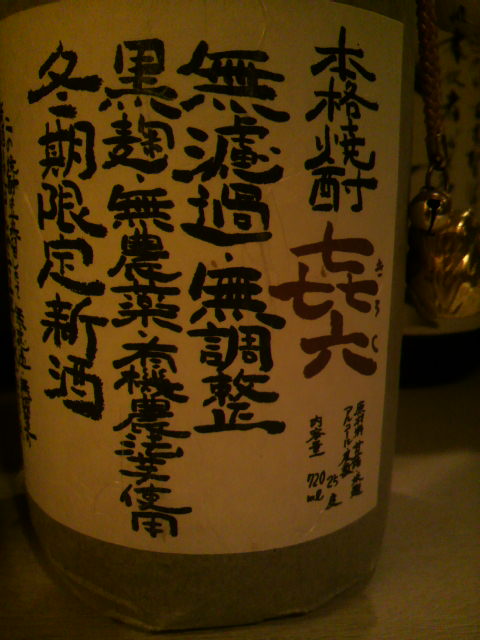 本格焼酎 㐂六
きろく
原材料 甘藷・米麹
アルコール度数 25度
内容量 720ml
無濾過・無調整
黒麹・無農薬・有機農法芋使用
冬期限定新酒